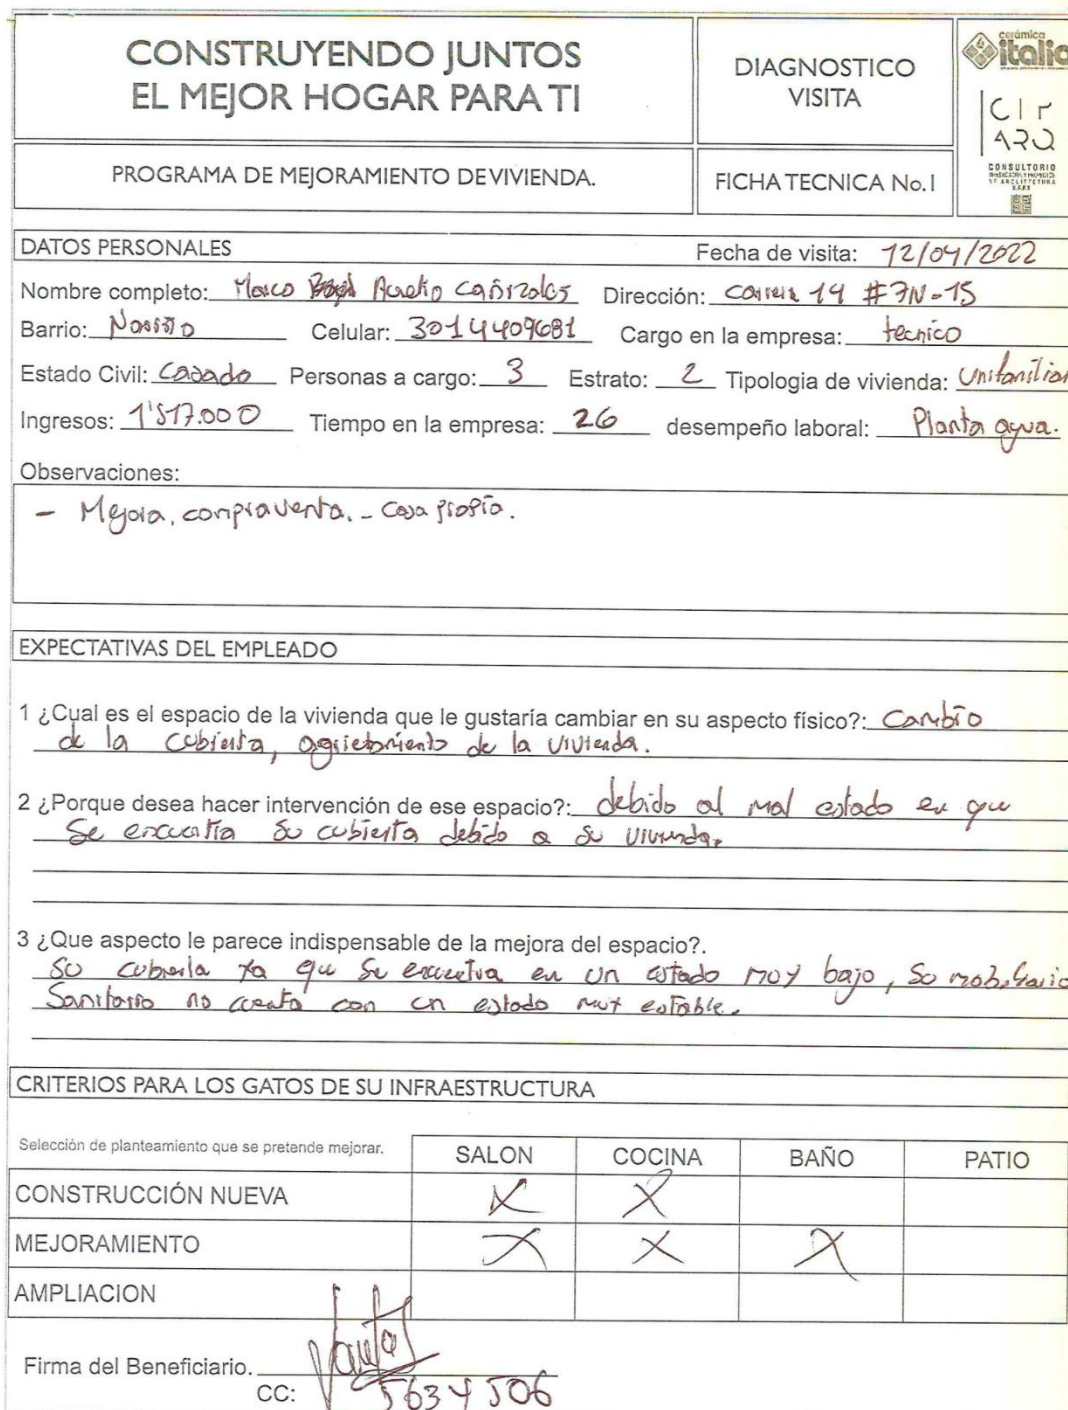 CONSTRUYENDO JUNTOS
EL MEJOR HOGAR PARA TI
DIAGNOSTICO
VISITA
cerámica
italia
CIr
ARQ
CONSULTORIO
PROGRAMA DE MEJORAMIENTO DE VIVIENDA.
FICHA TECNICA No.1
DATOS PERSONALES
Fecha de visita: 12/04/2022
Nombre completo: Marco Aurelio Cañizales Dirección: Carrera 14 #7N-15
Barrio: Celular: 3014409681 Cargo en la empresa: tecnico
Estado Civil: Casado Personas a cargo: 3 Estrato: 2 Tipologia de vivienda: Unifamiliar
Ingresos: 1'517.000 Tiempo en la empresa: 26 desempeño laboral: Planta agua.
Observaciones:
- Mejora, compraventa. - Casa propia.
EXPECTATIVAS DEL EMPLEADO
1 ¿Cual es el espacio de la vivienda que le gustaría cambiar en su aspecto físico?: Cambio
de la cubierta, agrietamiento de la vivienda.
2 ¿Porque desea hacer intervención de ese espacio?: debido al mal estado en que
Se encuentra su cubierta debido a su vivienda.
3 ¿Que aspecto le parece indispensable de la mejora del espacio?.
Su cubierta ya que se encuentra en un estado muy bajo, su mobiliario
Sanitario no cuenta con un estado muy estable.
CRITERIOS PARA LOS GATOS DE SU INFRAESTRUCTURA
Selección de planteamiento que se pretende mejorar. SALON COCINA BAÑO PATIO
CONSTRUCCIÓN NUEVA X X
MEJORAMIENTO X X X
AMPLIACION
Firma del Beneficiario.
CC: 5634506